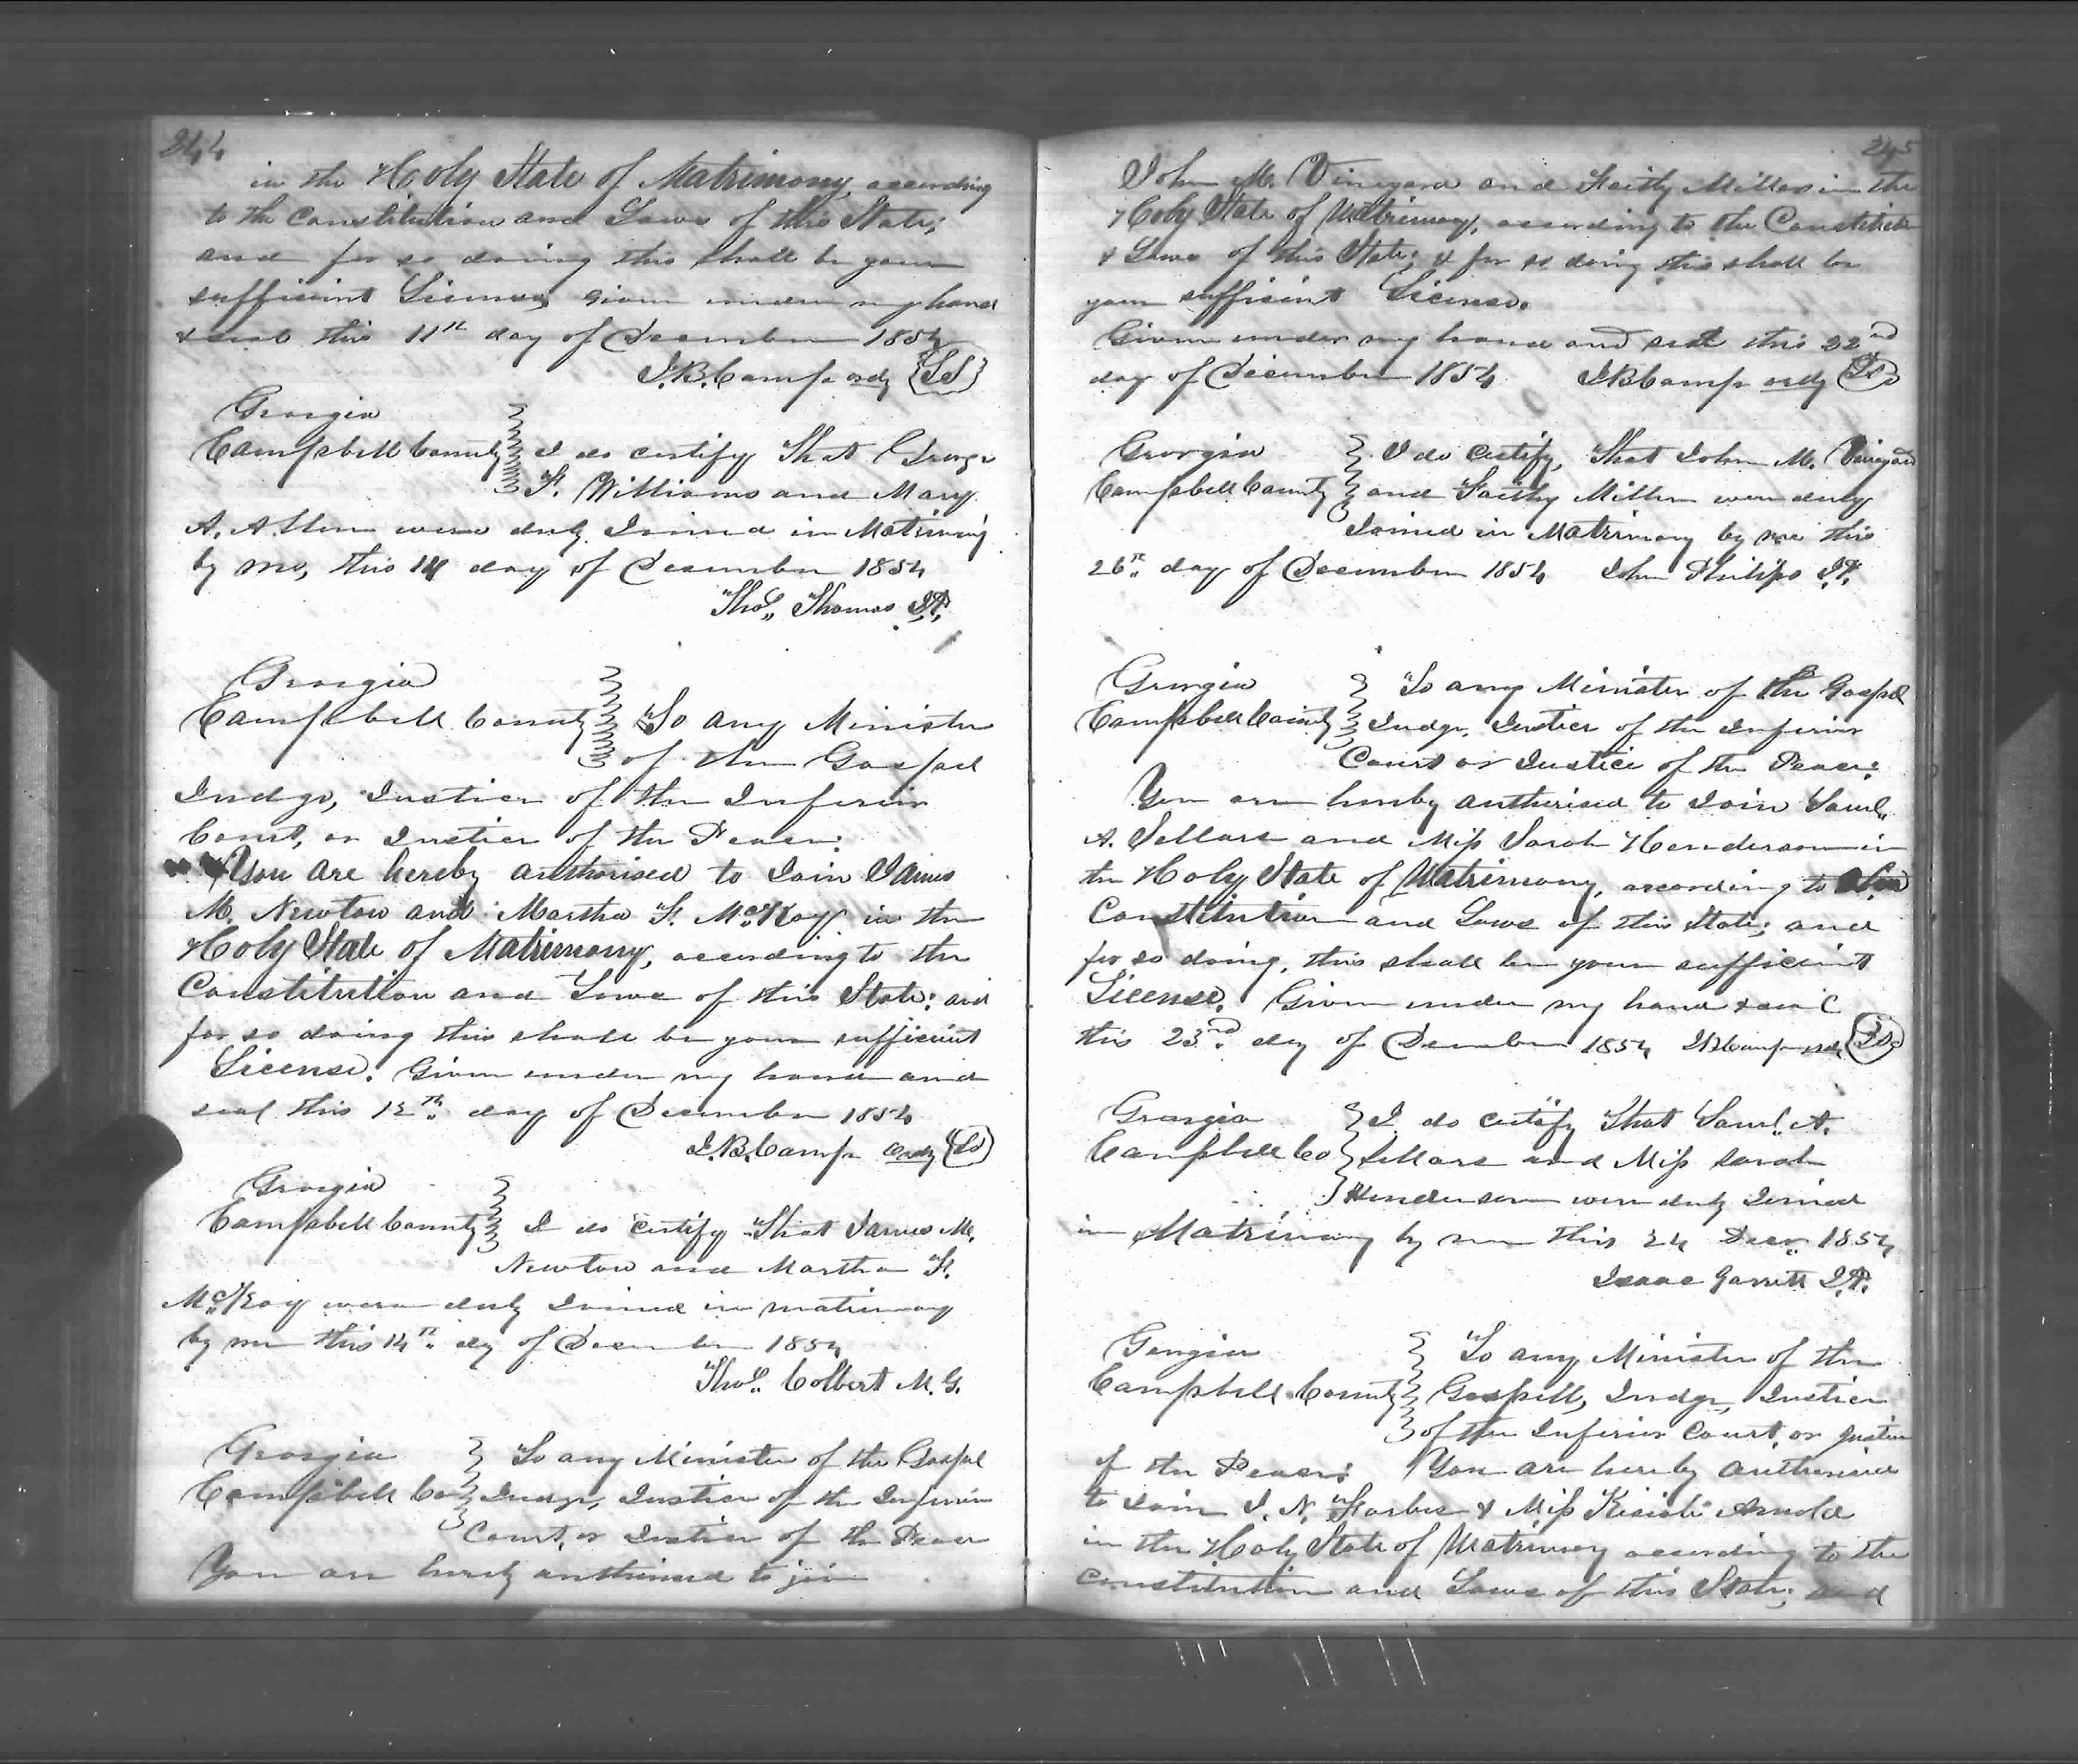 244
in the Holy State of Matrimony, according
to the Constitution and Laws of this State;
and for so doing this shall be your
sufficient License, Given under my hand
& seal this 11th day of December 1854
J. B. Camp ordy {LS}
Georgia
Campbell County I do certify That George
F. Williams and Mary
A. Allen were duly Joined in Matrimony
by me, this day of December 1854
Thos. Thomas J.P.
Georgia
Campbell County To any Minister
of the Gospel
Judge, Justice of the Inferior
Court, or Justice of the Peace:
You are hereby authorised to Join James
M. Newton and Martha F. McKoy in the
Holy State of Matrimony, according to the
Constitution and Laws of this State: and
for so doing this shall be your sufficient
License. Given under my hand and
seal this 12th day of December 1854
J. B. Camp Ordy (LS)
Georgia
Campbell County I do certify That James M.
Newton and Martha F.
McKoy were duly Joined in matrimony
by me this 14th dy of December 1854
Thos. Colbert M. G.
Georgia To any Minister of the Gospel
Campbell Co Judge, Justice of the Inferior
Court, or Justice of the Peace
You are hereby authorised to join
245
John M. Vineyard and Faithy Miller in the
Holy State of Matrimony, according to the Constitution
& Laws of this State; & for so doing this shall be
your sufficient License.
Given under my hand and seal this 22nd
day of December 1854 J B Camp ordy (LS)
Georgia I do certify, That John M. Vineyard
Campbell County and Faithy Miller were duly
Joined in Matrimony by me this
26th day of December 1854 John Philips J.P.
Georgia To any Minister of the Gospel
Campbell County Judge, Justice of the Inferior
Court or Justice of the Peace:
You are hereby authorised to Join Saml.
A. Sellars and Miss Sarah Henderson in
the Holy State of Matrimony, according to the
Constitution and Laws of this State; and
for so doing, this shall be your sufficient
License. Given under my hand & seal
this 23rd dy of December 1854 J B Camp ordy (LS)
Georgia I do certify That Saml. A.
Campbell Co Sellars and Miss Sarah
Henderson were duly Joined
in Matrimony by me this 24 Decr. 1854
Isaac Garrett J.P.
Georgia To any Minister of the
Campbell County Gospell, Judge, Justice
of the Inferior Court, or Justice
of the Peace: You are hereby authorised
to Join J. N. Forbes & Miss Kisiah Arnold
in the Holy State of Matrimony according to the
Constitution and Laws of this State; and